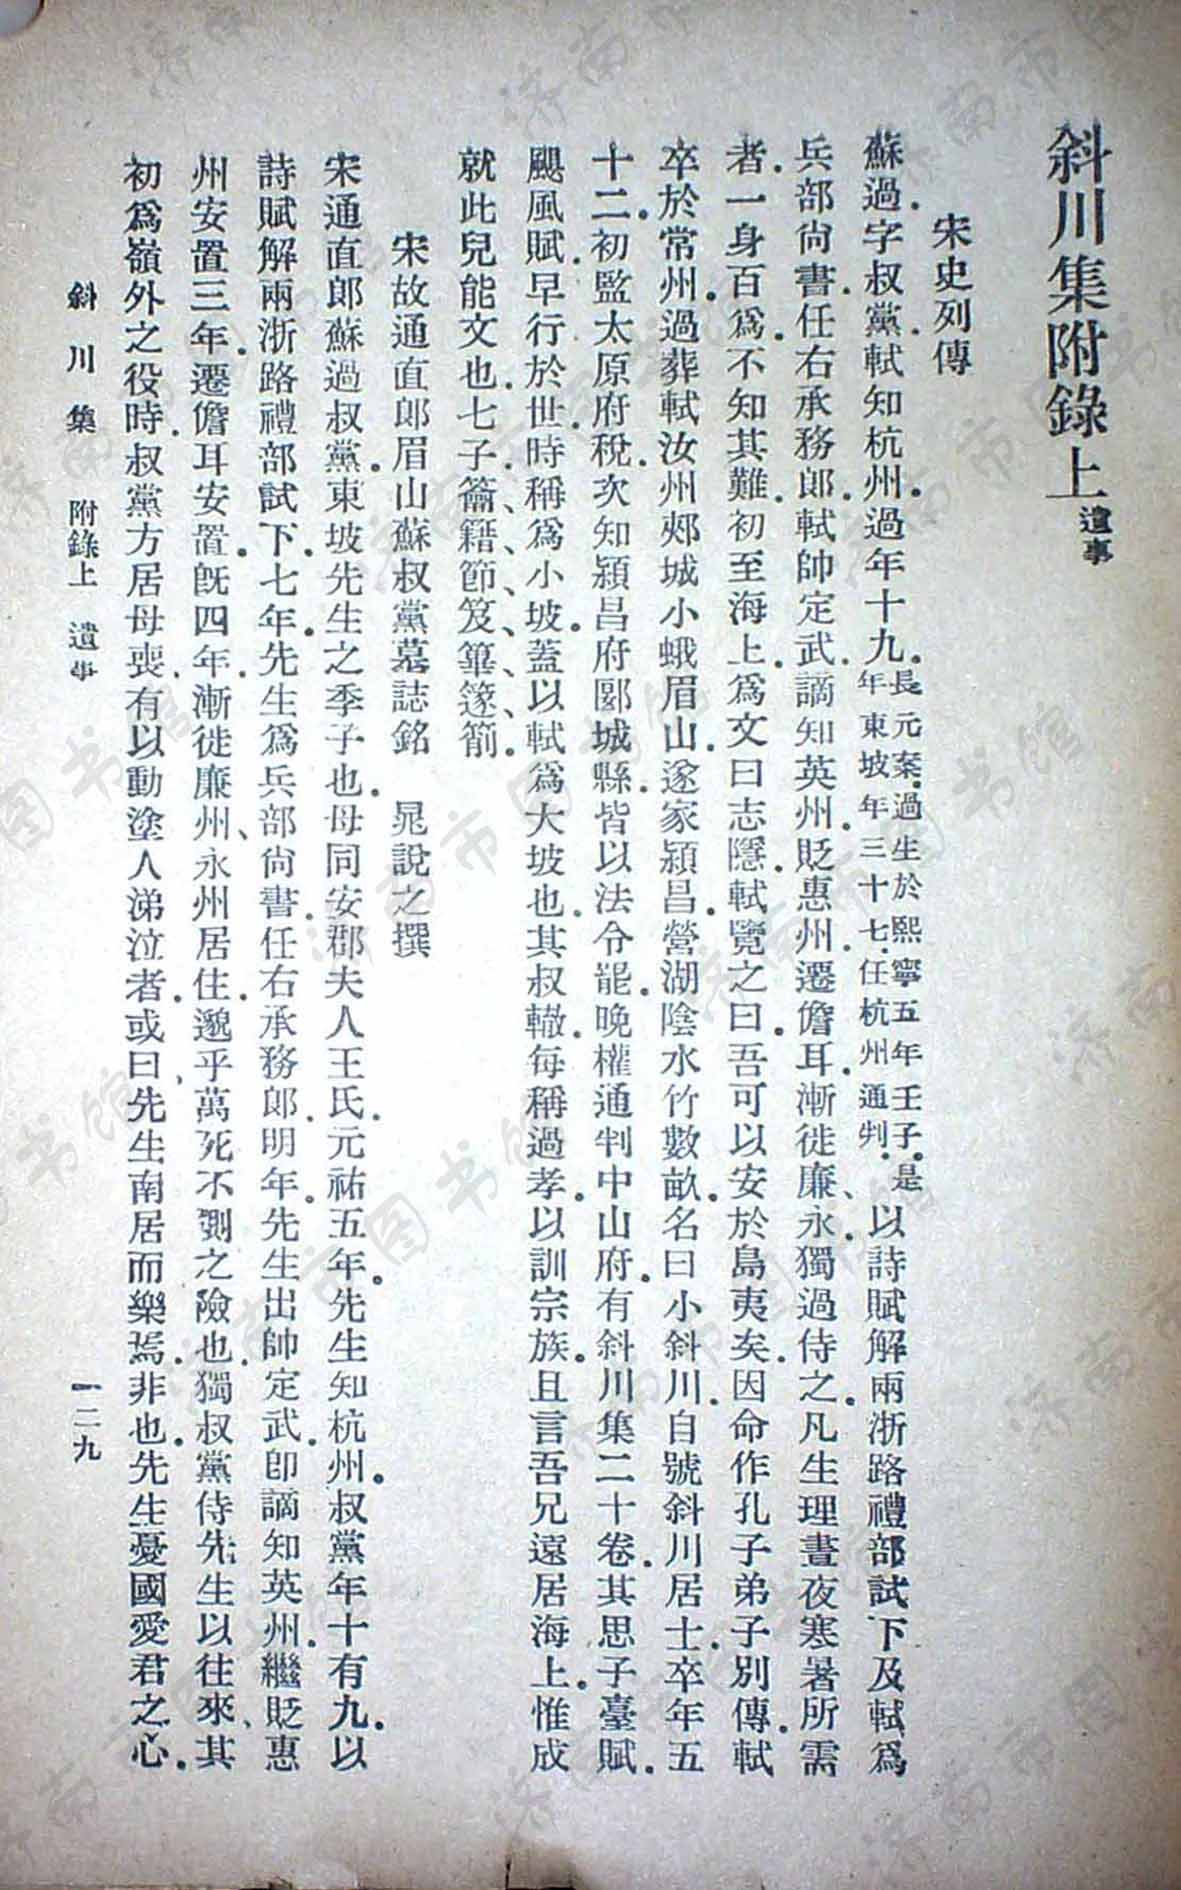 斜川集附錄上 遺事
宋史列傳
蘇過字叔黨.軾知杭州.過年十九.長元案.過生於熙寧五年壬子.是年東坡年三十七.任杭州通判.以詩賦解兩浙路禮部試下及軾爲
兵部尙書.任右承務郎.軾帥定武.謫知英州.貶惠州.遷儋耳.漸徙廉、永.獨過侍之.凡生理晝夜寒暑所需
者.一身百爲.不知其難.初至海上.爲文曰志隱.軾覽之曰.吾可以安於島夷矣.因命作孔子弟子別傳.軾
卒於常州.過葬軾汝州郟城小蛾眉山.遂家潁昌.營湖陰水竹數畝.名曰小斜川.自號斜川居士.卒年五
十二.初監太原府稅.次知潁昌府郾城縣.皆以法令罷.晚權通判中山府.有斜川集二十卷.其思子臺賦.
颶風賦.早行於世.時稱爲小坡.蓋以軾爲大坡也.其叔轍.每稱過孝.以訓宗族.且言吾兄遠居海上.惟成
就此兒能文也.七子.籥、籍、節、笈、篳、籧、箾.
宋故通直郎眉山蘇叔黨墓誌銘 晁說之撰
宋通直郎蘇過叔黨.東坡先生之季子也.母同安郡夫人王氏.元祐五年.先生知杭州.叔黨年十有九.以
詩賦解兩浙路禮部試下.七年.先生爲兵部尙書.任右承務郎.明年.先生出帥定武.卽謫知英州.繼貶惠
州安置三年.遷儋耳安置.旣四年.漸徙廉州、永州居住.邈乎萬死不測之險也.獨叔黨侍先生以往來.其
初爲嶺外之役.時叔黨方居母喪.有以動塗人涕泣者.或曰、先生南居而樂焉.非也.先生憂國愛君之心.
斜川集 附錄上 遺事 一二九